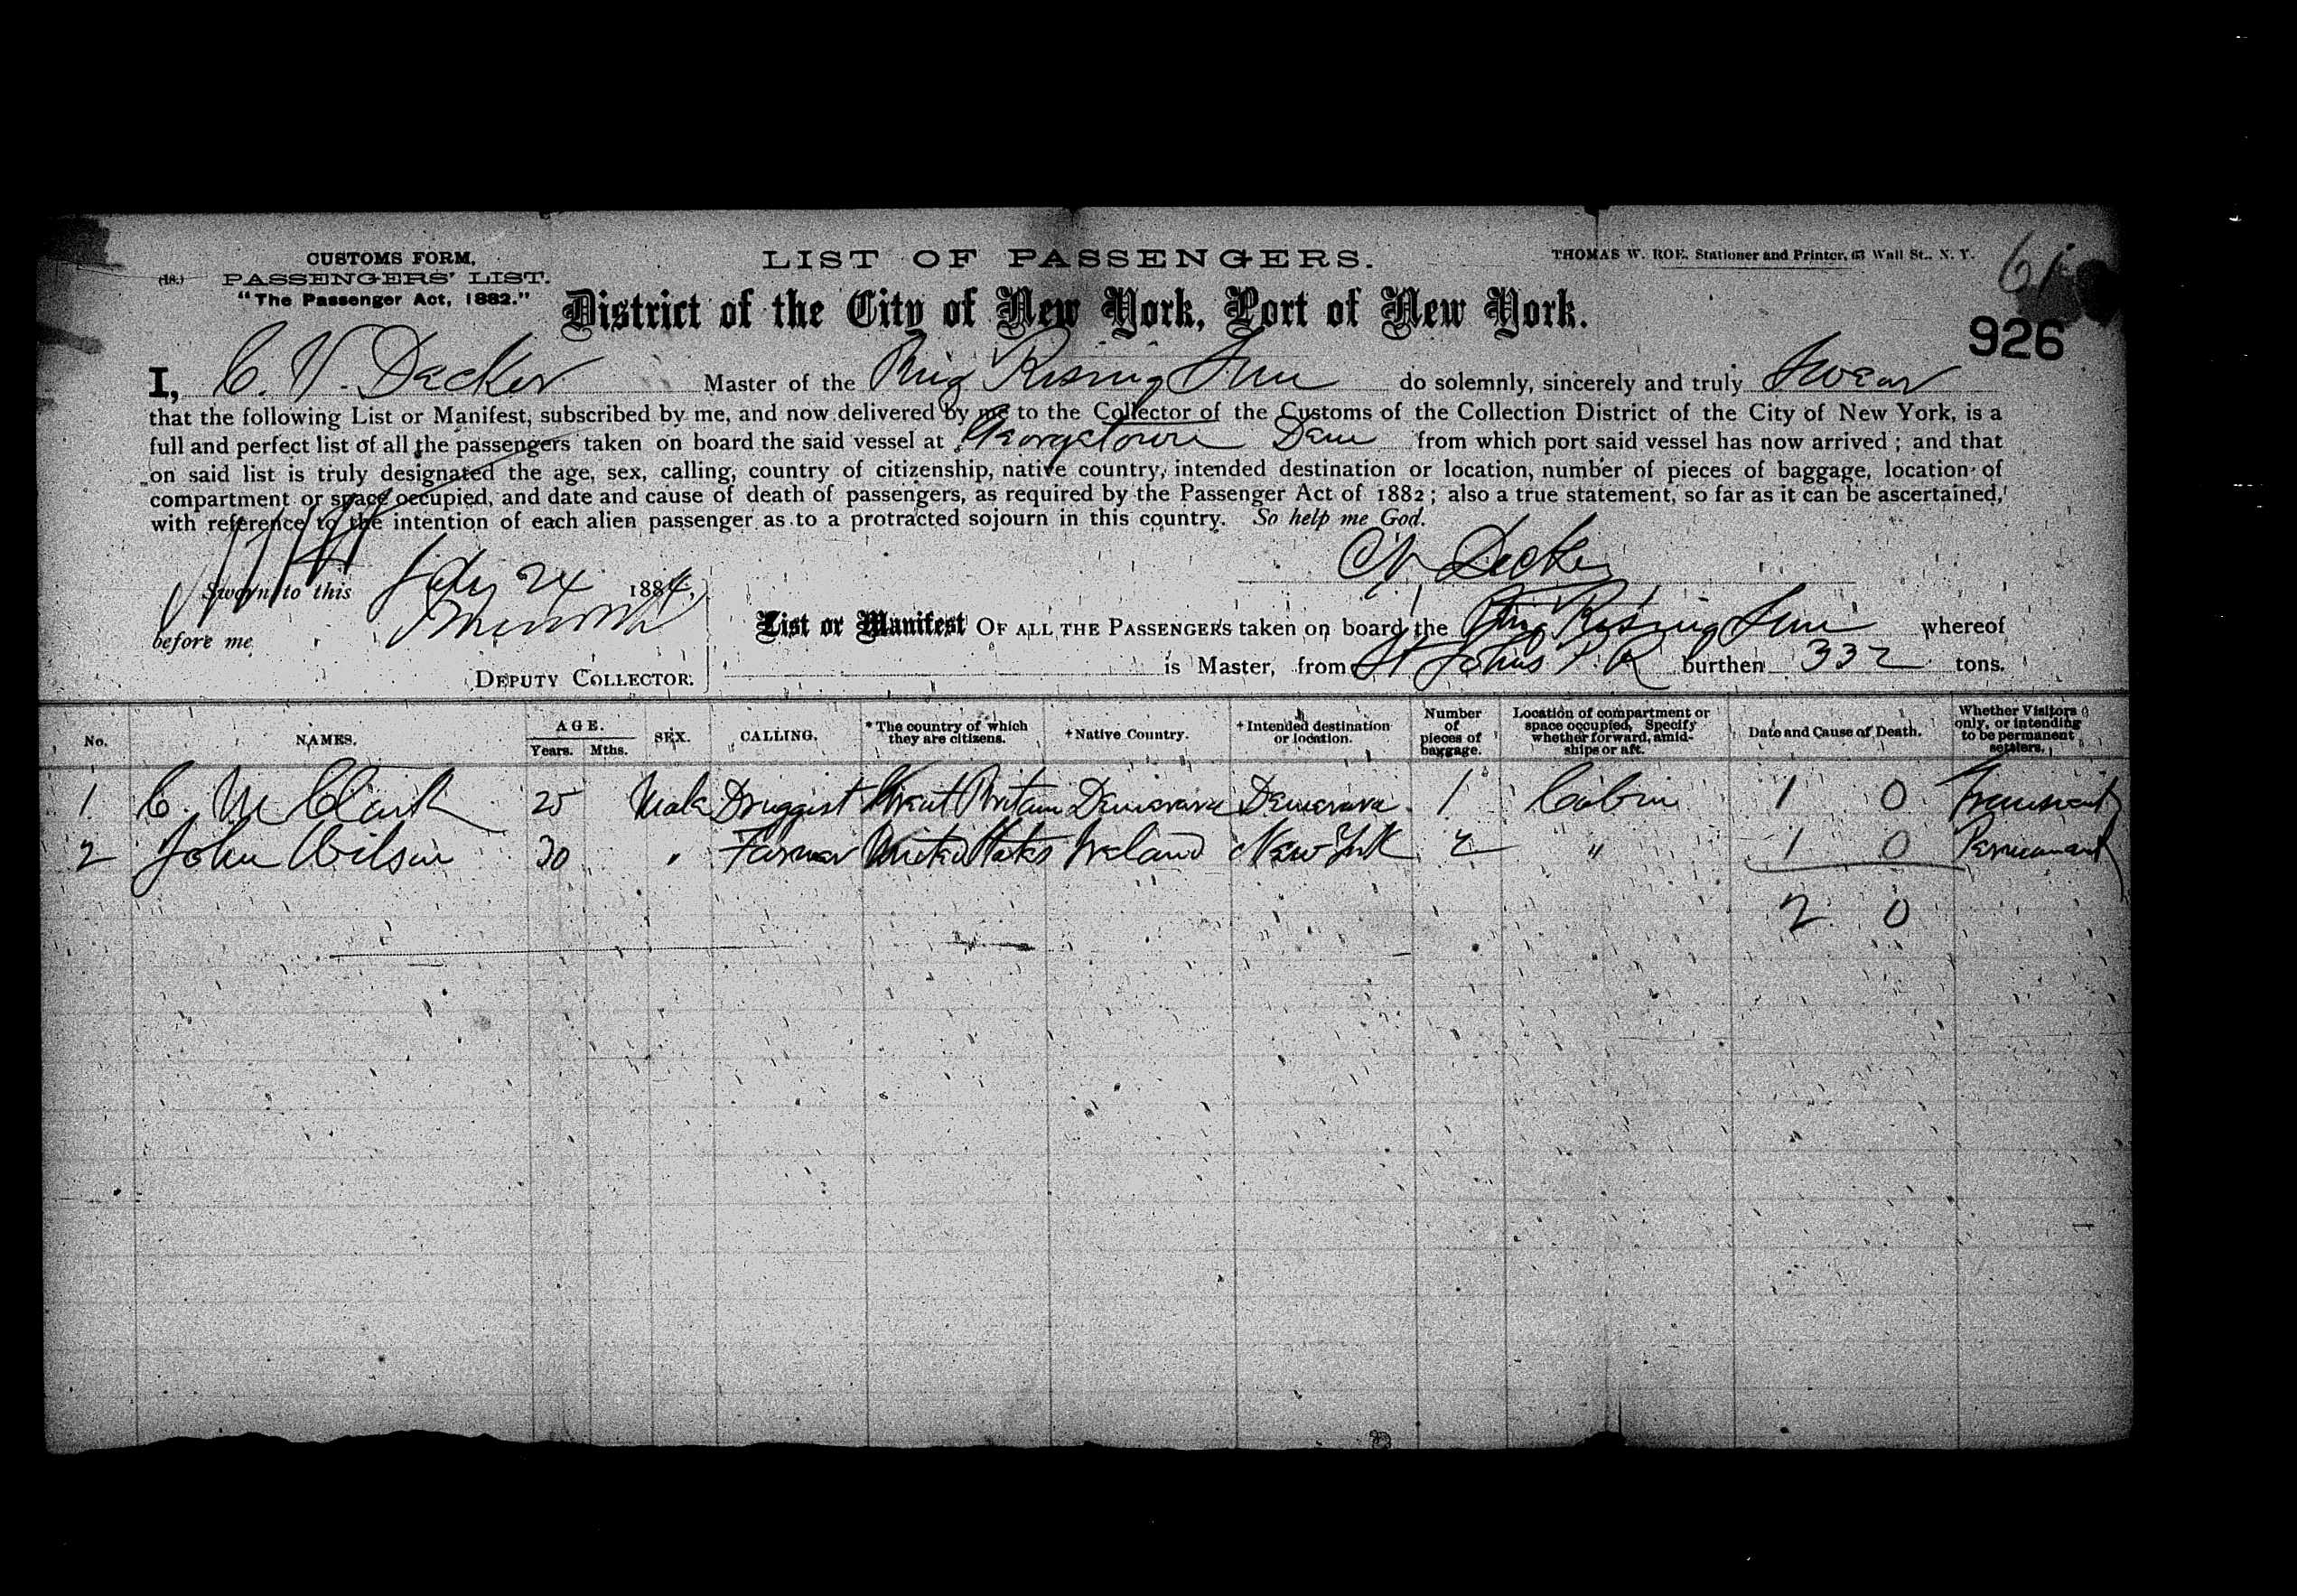 CUSTOMS FORM,
(18.) PASSENGERS' LIST.
"The Passenger Act, 1882."
LIST OF PASSENGERS.
THOMAS W. ROE. Stationer and Printer, 63 Wall St., N. Y.
61
District of the City of New York, Port of New York.
926
I, C. V. Decker Master of the Brig Rising Sun do solemnly, sincerely and truly Swear
that the following List or Manifest, subscribed by me, and now delivered by me to the Collector of the Customs of the Collection District of the City of New York, is a
full and perfect list of all the passengers taken on board the said vessel at Georgetown Dem from which port said vessel has now arrived ; and that
on said list is truly designated the age, sex, calling, country of citizenship, native country, intended destination or location, number of pieces of baggage, location of
compartment or space occupied, and date and cause of death of passengers, as required by the Passenger Act of 1882 ; also a true statement, so far as it can be ascertained,
with reference to the intention of each alien passenger as to a protracted sojourn in this country. So help me God.
CV Decker
Sworn to this July 24 1884,
before me
DEPUTY COLLECTOR.
List or Manifest OF ALL THE PASSENGERS taken on board the Brig Rising Sun whereof
is Master, from St Johns P. R burthen 332 tons.
No. NAMES. AGE. Years. Mths. SEX. CALLING. * The country of which they are citizens. + Native Country. + Intended destination or location. Number of pieces of baggage. Location of compartment or space occupied, Specify whether forward, amidships or aft. Date and Cause of Death. Whether Visitors only, or intending to be permanent settlers.
1 C. M Clark 25 Male Druggist Great Britain Demerara Demerara 1 Cabin 1 0 Transient
2 John Wilson 30 " Farmer United States Ireland New York 2 " 1 0 Permanent
2 0